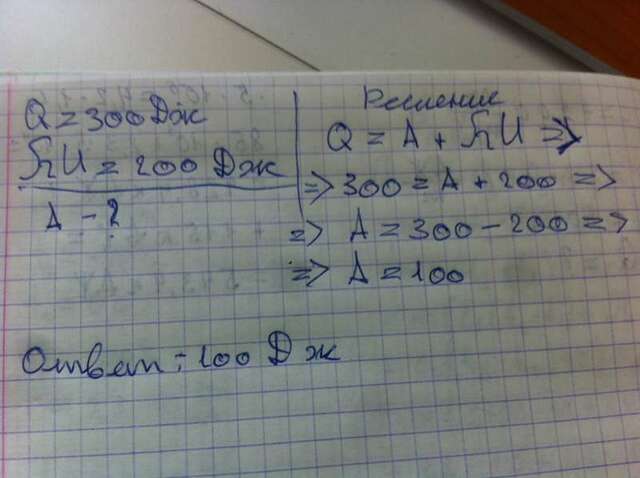 Q = 300 Дж
ΔU = 200 Дж
A - ?
Решение
Q = A + ΔU =>
=> 300 = A + 200 =>
=> A = 300 - 200 =>
=> A = 100
Ответ: 100 Дж